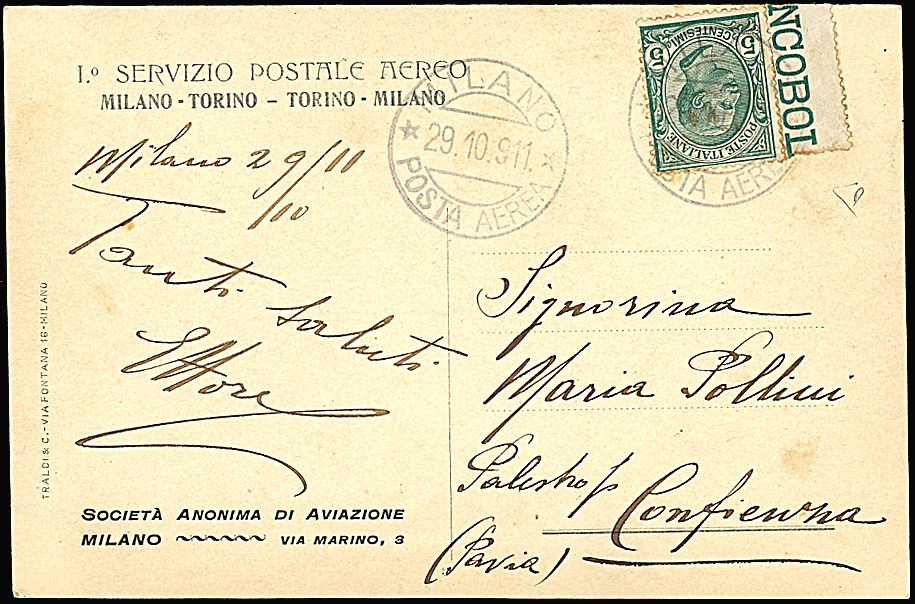 I.º SERVIZIO POSTALE AEREO
MILANO - TORINO - TORINO - MILANO
Milano 29/11
/10
Tanti saluti
Ettore
TRALDI & C. - VIA FONTANA 16 - MILANO
SOCIETÀ ANONIMA DI AVIAZIONE
MILANO VIA MARINO, 3
MILANO
29.10.911.
POSTA AEREA
CENTESIMI
5 5
POSTE ITALIANE
NCOBOI
STA AERE
Signorina
Maria Pollini
Palestro p
Confienza
(Pavia)